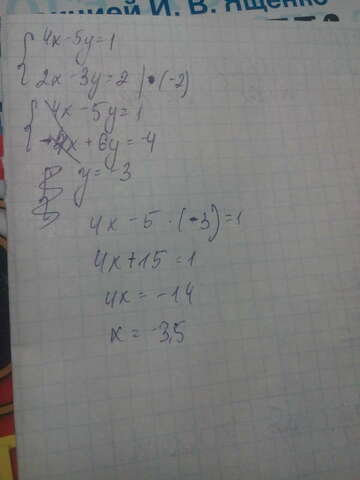 цией И. В. Ященко
4x-5y=1
2x-3y=2 | • (-2)
4x-5y=1
-4x+6y=-4
y=-3
4x-5·(-3)=1
4x+15=1
4x=-14
x=-3,5